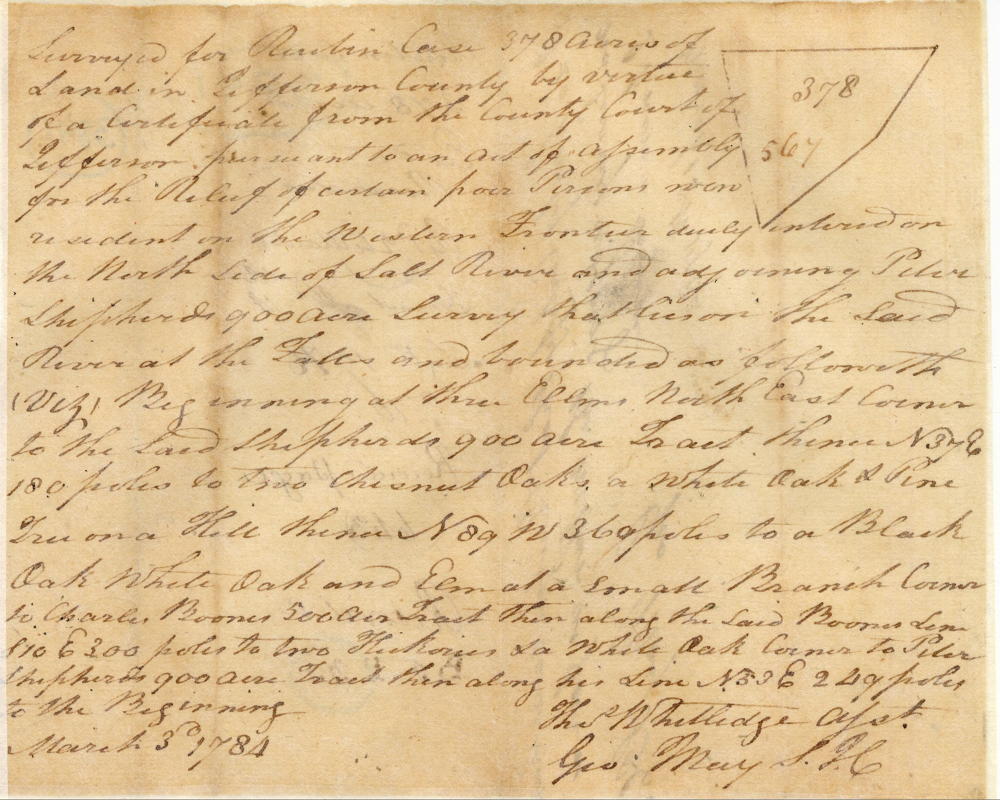 Surveyed for Reubin Case 378 Acres of
Land in Jefferson County by virtue
of a Certificate from the County Court of
Jefferson pursuant to an act of assembly
for the Relief of certain poor Persons now
resident on the Western Frontier duely entered on
the North Side of Salt River and adjoining Peter
Shepherds 900 acre Survey that lies on the Said
River at the Falls and bounded as followeth
(Viz) Beginning at three Ellms North East Corner
to the Said Shepherds 900 acre Tract thence N37E
180 poles to two Chesnut Oaks a White Oak & Pine
Tree on a Hill thence N89W 369 poles to a Black
Oak White Oak and Elm at a Small Branch Corner
to Charles Boones 500 acre Tract then along the Said Boones Line
S10E 300 poles to two Hickories & a White Oak Corner to Peter
Shepherds 900 acre Tract then along his Line N53E 249 poles
to the Beginning
Thos Whitledge Asst.
March 3d 1784
Geo: May S.J.C
378
567